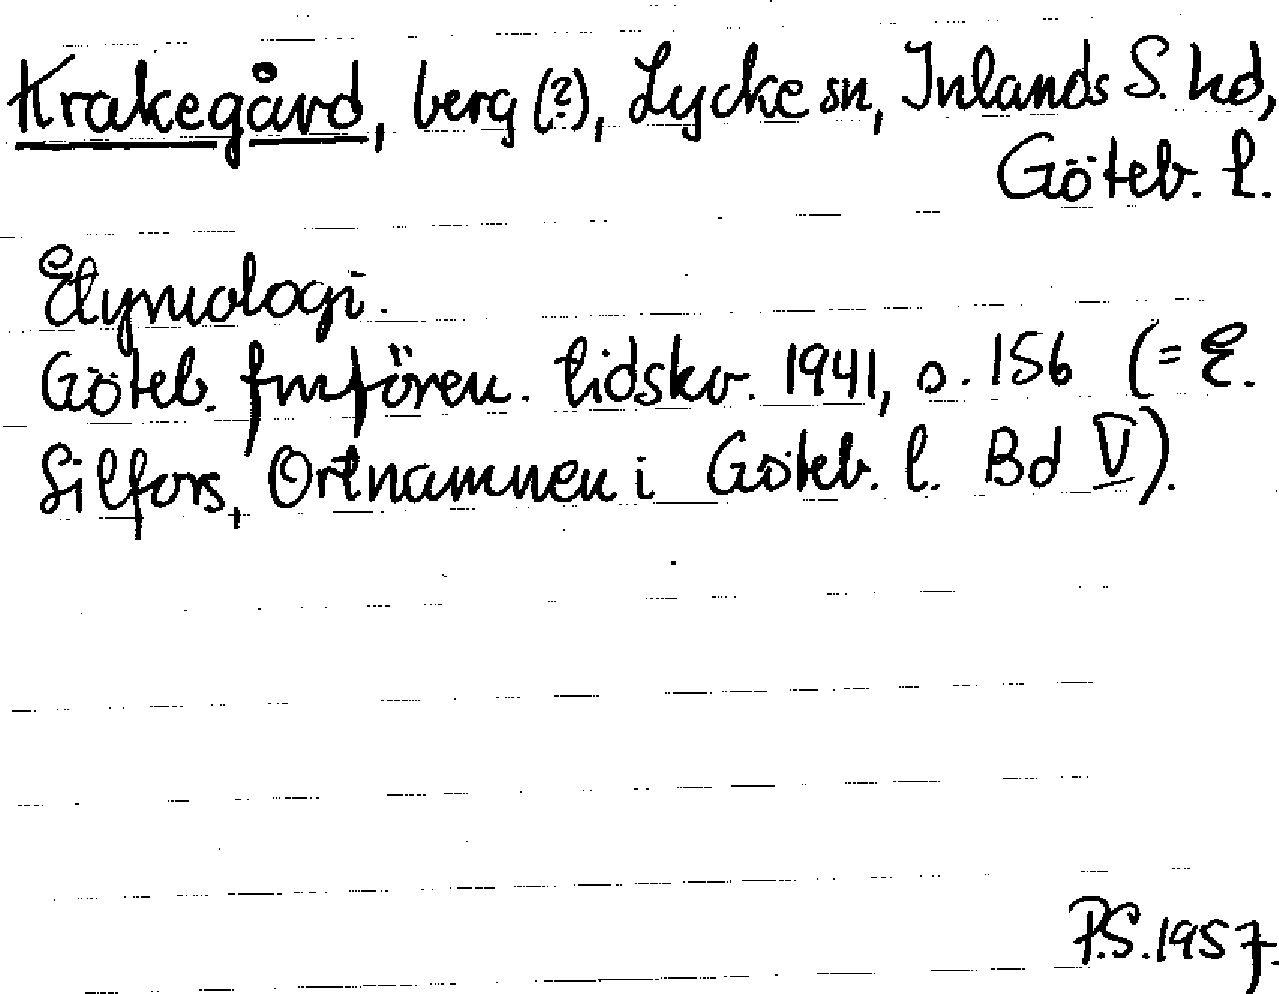 Krakegård, berg (?), Lycke sn, Inlands S. hd,
Göteb. l.
Etymologi.
Göteb. fmfören. tidskr. 1941, s. 156 (= E.
Silfors, Ortnamnen i Göteb. l. Bd V).
P.S. 1957.